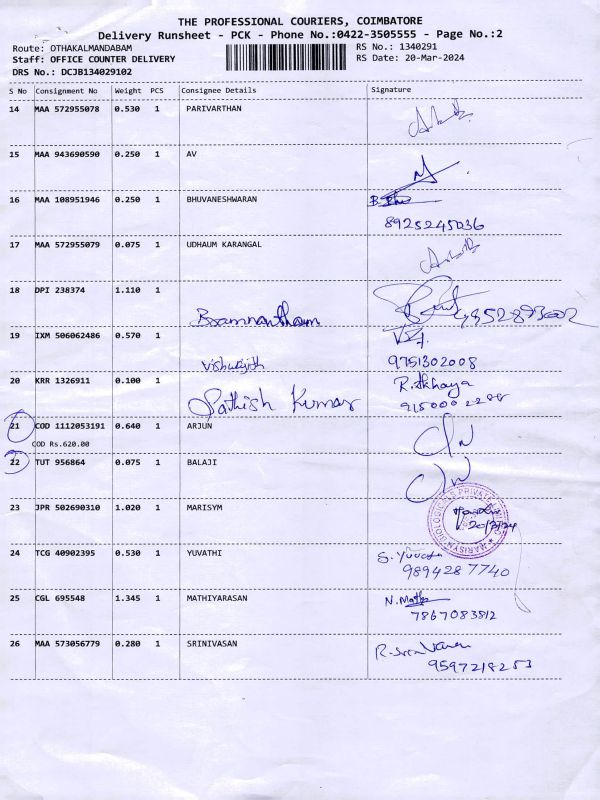 THE PROFESSIONAL COURIERS, COIMBATORE
Delivery Runsheet - PCK - Phone No.:0422-3505555 - Page No.:2
Route: OTHAKALMANDABAM
RS No.: 1340291
Staff: OFFICE COUNTER DELIVERY
RS Date: 20-Mar-2024
DRS No.: DCJB134029102
S No Consignment No Weight PCS Consignee Details Signature
14 MAA 572955078 0.530 1 PARIVARTHAN
15 MAA 943690590 0.250 1 AV
16 MAA 108951946 0.250 1 BHUVANESHWARAN
8925245036
17 MAA 572955079 0.075 1 UDHAUM KARANGAL
18 DPI 238374 1.110 1
19 IXM 506062486 0.570 1
9751302008
20 KRR 1326911 0.100 1
Sathish Kumar
21 COD 1112053191 0.640 1 ARJUN
COD Rs.620.00
22 TUT 956864 0.075 1 BALAJI
23 JPR 502690310 1.020 1 MARISYM
MARISYM BIOLOGICALS PRIVATE
20/3/24
24 TCG 40902395 0.530 1 YUVATHI
S. Yuvathi
9894287740
25 CGL 695548 1.345 1 MATHIYARASAN
7867083812
26 MAA 573056779 0.280 1 SRINIVASAN
9597218253